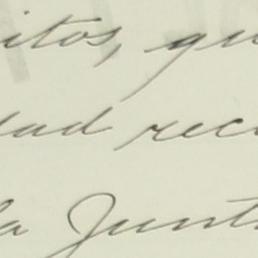 itos, qu
dad rec
la Junt